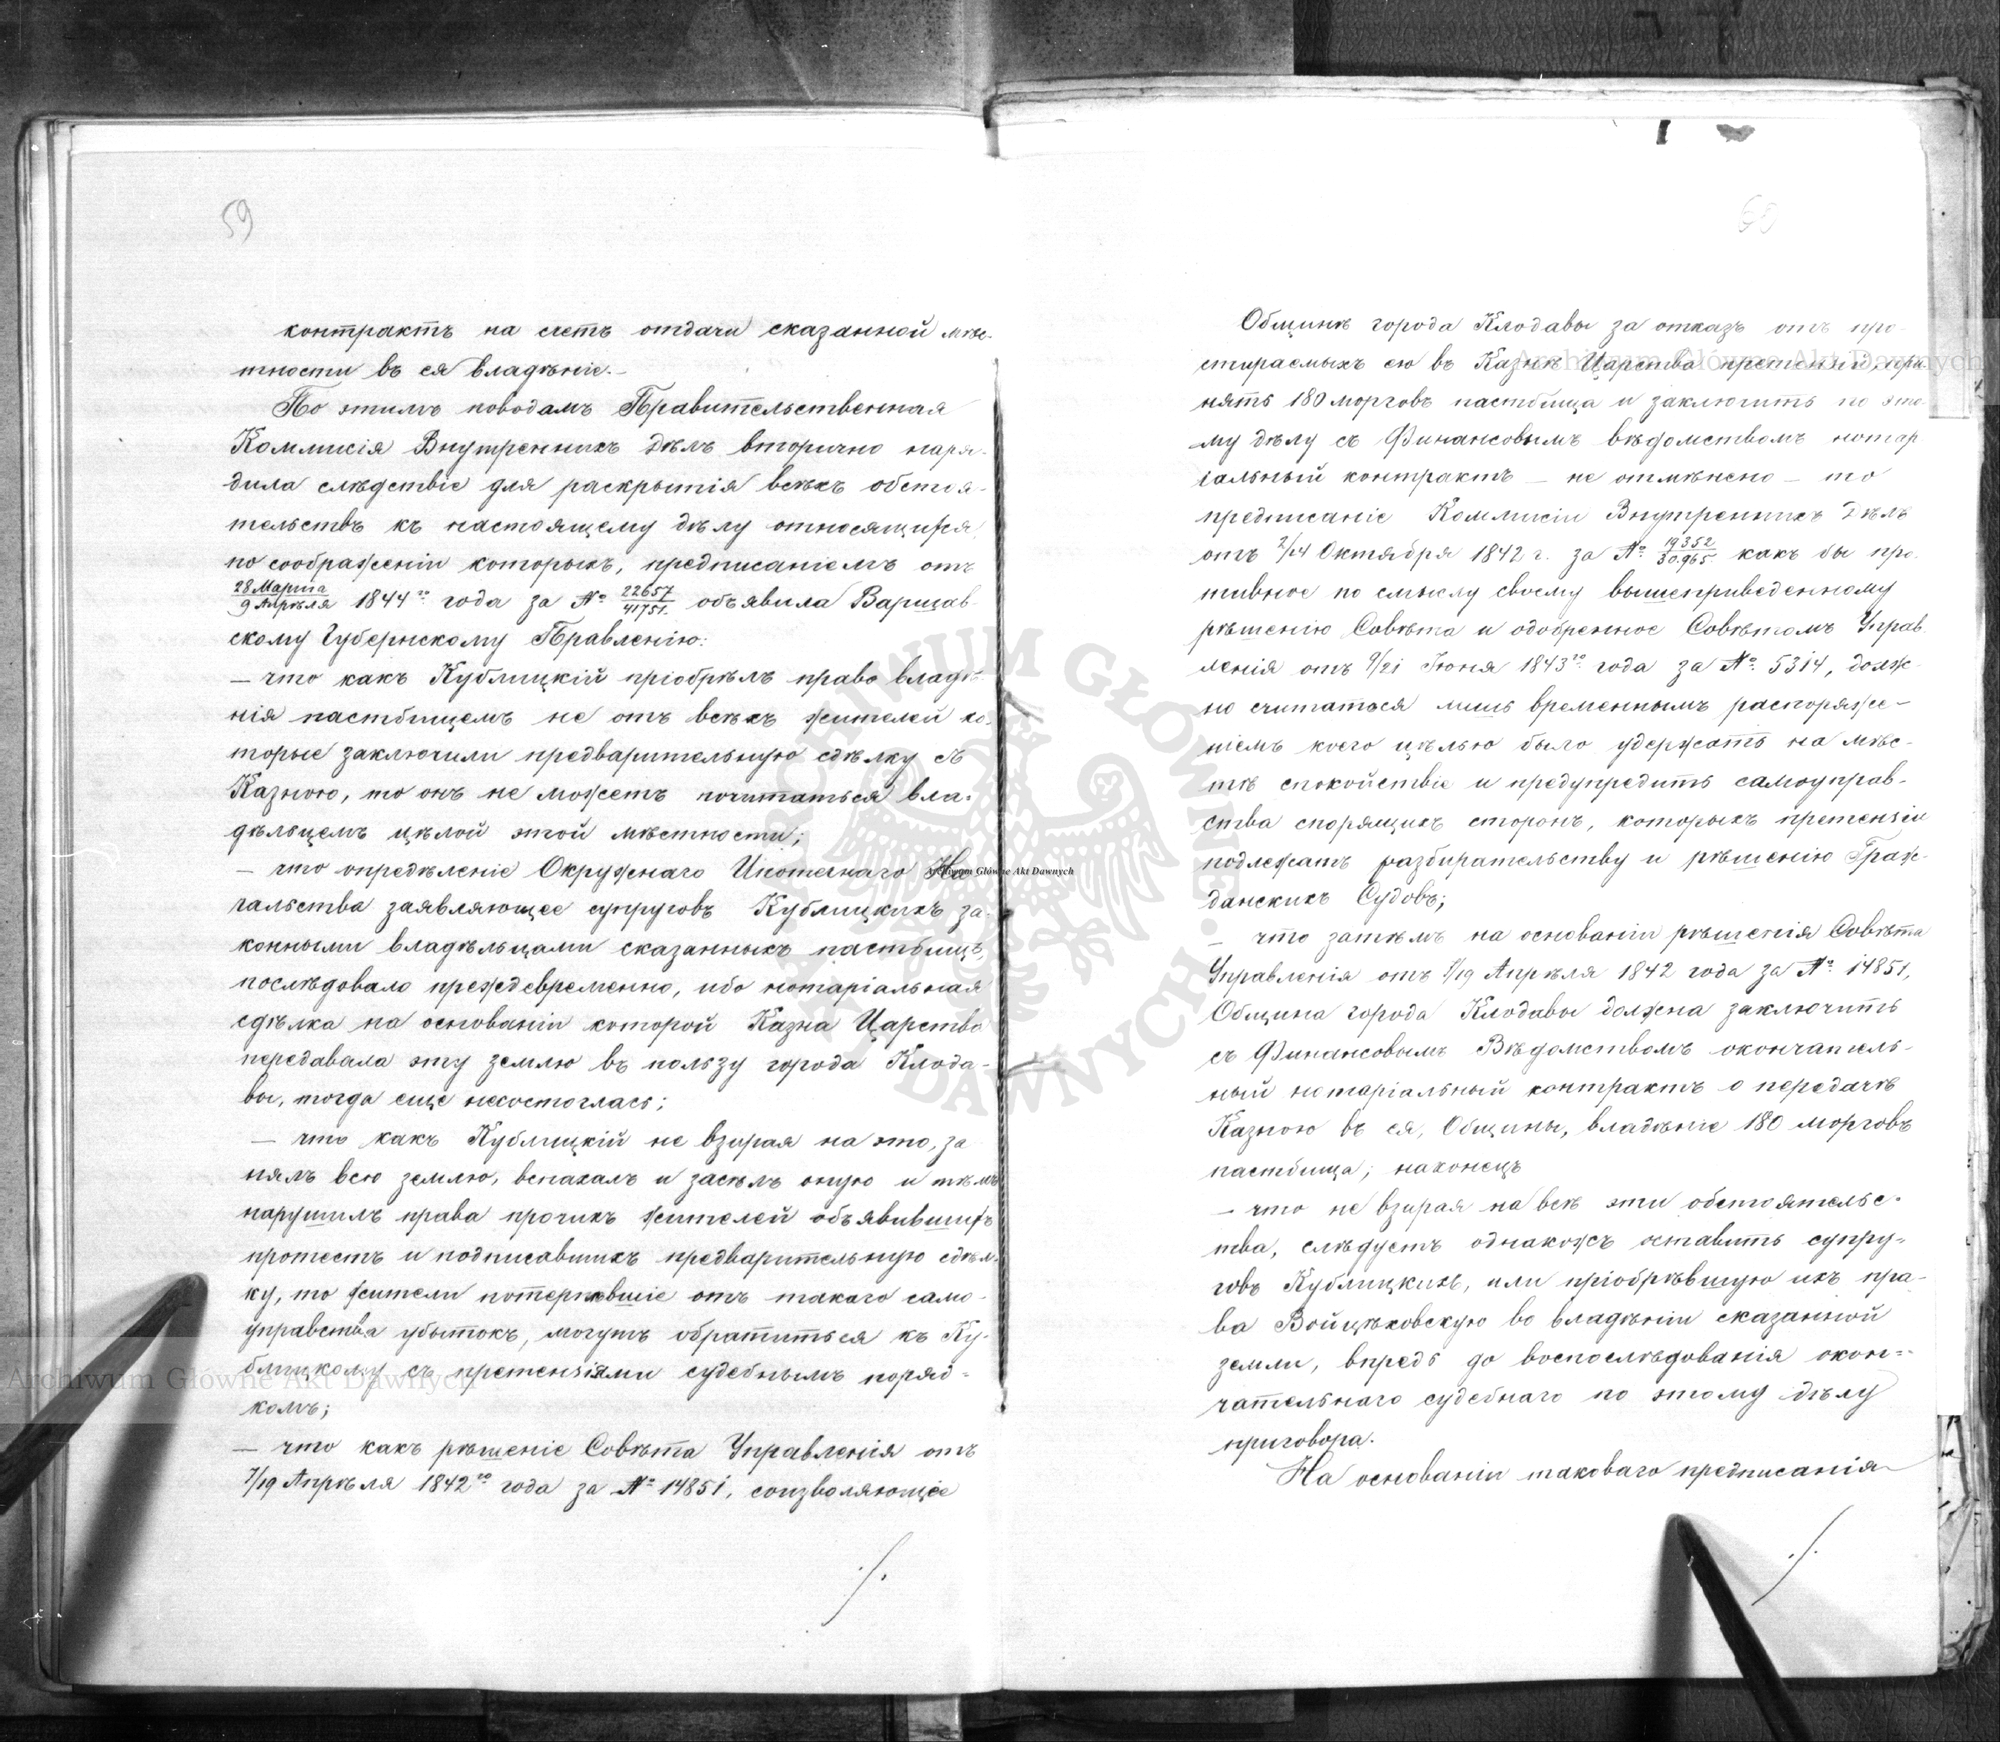 59
контрактъ на счетъ отдачи сказанной мѣс-
тности въ ея владѣніе.—
По этимъ поводамъ Правительственная
Коммисія Внутреннихъ Дѣлъ вторично наря-
дила слѣдствіе для раскрытія всѣхъ обстоя-
тельствъ къ настоящему дѣлу относящихся,
по соображеніи которыхъ, предписаніемъ отъ
28 Марта/9 Апрѣля 1844го года за № 22657/41751. объявила Варшав-
скому Губернскому Правленію:
— что какъ Кублицкій пріобрѣлъ право владѣ-
нія пастбищемъ не отъ всѣхъ жителей ко-
торые заключили предварительную сдѣлку съ
Казною, то онъ не можетъ почитаться вла-
дѣльцемъ цѣлой этой мѣстности;
— что опредѣленіе Окружнаго Ипотечнаго На-
чальства заявляющее супруговъ Кублицкихъ за-
конными владѣльцами сказанныхъ пастбищъ,
послѣдовало преждевременно, ибо нотаріальная
сдѣлка на основаніи которой Казна Царства
передавала эту землю въ пользу города Клода-
вы, тогда еще несостоялась;
— что какъ Кублицкій не взирая на это, за
нялъ всю землю, вспахалъ и засѣлъ оную и тѣмъ
нарушилъ права прочихъ жителей объявившихъ
протестъ и подписавшихъ предварительную сдѣл-
ку, то жители потерпѣвшіе отъ такаго само-
управства убытокъ, могутъ обратиться къ Ку-
блицкому съ претензіями судебнымъ поряд-
комъ;
— что какъ рѣшеніе Совѣта Управленія отъ
7/19 Апрѣля 1842го года за № 14851, соизволяющее
./.
60
Общинѣ города Клодавы за отказъ отъ про-
стираемыхъ ею къ Казнѣ Царства претензій, при-
нять 180 морговъ пастбища и заключить по это-
му дѣлу съ Финансовымъ вѣдомствомъ нотар
іальный контрактъ — не отмѣнено — то
предписаніе Коммисіи Внутреннихъ Дѣлъ
отъ 2/14 Октября 1842 г. за № 19352/30965 какъ бы про-
тивное по смыслу своему вышеприведенному
рѣшенію Совѣта и одобренное Совѣтомъ Управ
ленія отъ 9/21 Іюня 1843го года за № 5314, долж-
но считаться лишь временнымъ распоряже-
ніемъ коего цѣлью было удержать на мѣс-
тѣ спокойствіе и предупредить самоуправ-
ства спорящихъ сторонъ, которыхъ претензіи
подлежатъ разбирательству и рѣшенію Граж-
данскихъ Судовъ;
— что затѣмъ на основаніи рѣшенія Совѣта
Управленія отъ 7/19 Апрѣля 1842 года за № 14851,
Община города Клодавы должна заключить
съ Финансовымъ Вѣдомствомъ окончатель-
ный нотаріальный контрактъ о передачѣ
Казною въ ея, Общины, владѣніе 180 морговъ
пастбища; наконецъ
— что не взирая на всѣ эти обстоятельс-
тва, слѣдуетъ однакожъ оставить супру-
говъ Кублицкихъ, или пріобрѣвшую ихъ пра-
ва Войцѣховскую во владѣніи сказанной
земли, впредь до воспослѣдованія окон-
чательнаго судебнаго по этому дѣлу
приговора.
На основаніи таковаго предписанія
./.
Archiwum Główne Akt Dawnych
Archiwum Główne Akt Dawnych
Archiwum Główne Akt Dawnych
ARCHIWUM GŁÓWNE AKT DAWNYCH